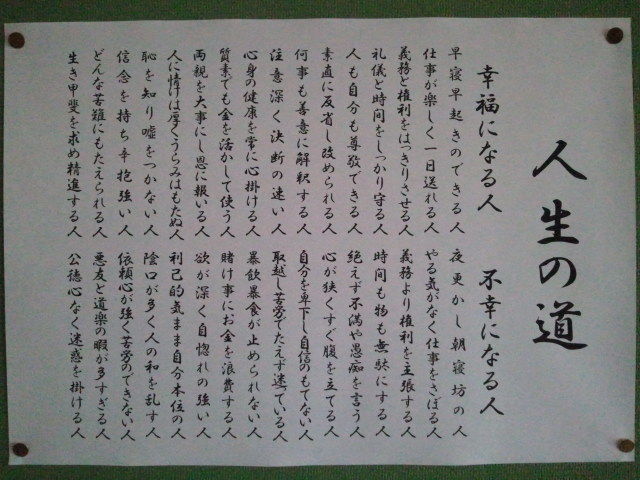 人生の道
幸福になる人
不幸になる人
早寝早起きのできる人
夜更かし朝寝坊の人
仕事が楽しく一日送れる人
やる気がなく仕事をさぼる人
義務と権利をはっきりさせる人
義務より権利を主張する人
礼儀と時間をしっかり守る人
時間も物も無駄にする人
人も自分も尊敬できる人
絶えず不満や愚痴を言う人
素直に反省し改められる人
心が狭くすぐ腹を立てる人
何事も善意に解釈する人
自分を卑下し自信のもてない人
注意深く決断の速い人
取越し苦労でたえず迷っている人
心身の健康を常に心掛ける人
暴飲暴食が止められない人
質素でも金を活かして使う人
賭け事にお金を浪費する人
両親を大事にし恩に報いる人
欲が深く自惚れの強い人
人に情けは厚くうらみはもたぬ人
利己的気まま自分本位の人
恥を知り嘘をつかない人
陰口が多く人の和を乱す人
信念を持ち辛抱強い人
依頼心が強く苦労のできない人
どんな苦難にもたえられる人
悪友と道楽の暇が多すぎる人
生き甲斐を求め精進する人
公徳心なく迷惑を掛ける人